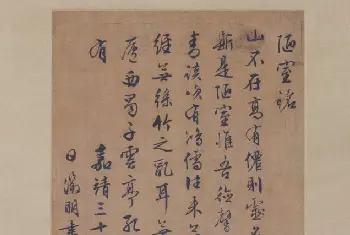 陋室銘
山不在高有僊則靈
斯是陋室惟吾德馨
青談咲有鴻儒往來無
經無絲竹之亂耳無
廬西蜀子雲亭孔
有 嘉靖三十
日徵明書